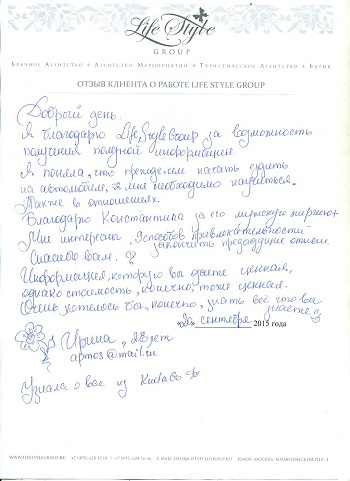 Life Style
GROUP
Брачное Агентство • Агентство Мероприятий • Туристическое Агентство • Бутик
ОТЗЫВ КЛИЕНТА О РАБОТЕ LIFE STYLE GROUP
Добрый день.
Я благодарю Life Style Group за возможность
получения полезной информации.
Я поняла, что прежде чем начать ездить
на автомобиле, мне необходимо научиться.
Также в отношениях.
Благодарю Константина за его мужскую энергию
Мне интересны, "способов привлекательности"
закончить предыдущие отнош.
Спасибо вам.
Информация, которую вы даете ценная,
однако стоимость, конечно, тоже ценная.
Очень хотелось бы, конечно, знать всё что вы
знаете
сентября 2015 года
Ирина, 28 лет
aptmos@mail.ru
Узнала о вас из KudaGo
WWW.LIFESTYLEGROUP.RU